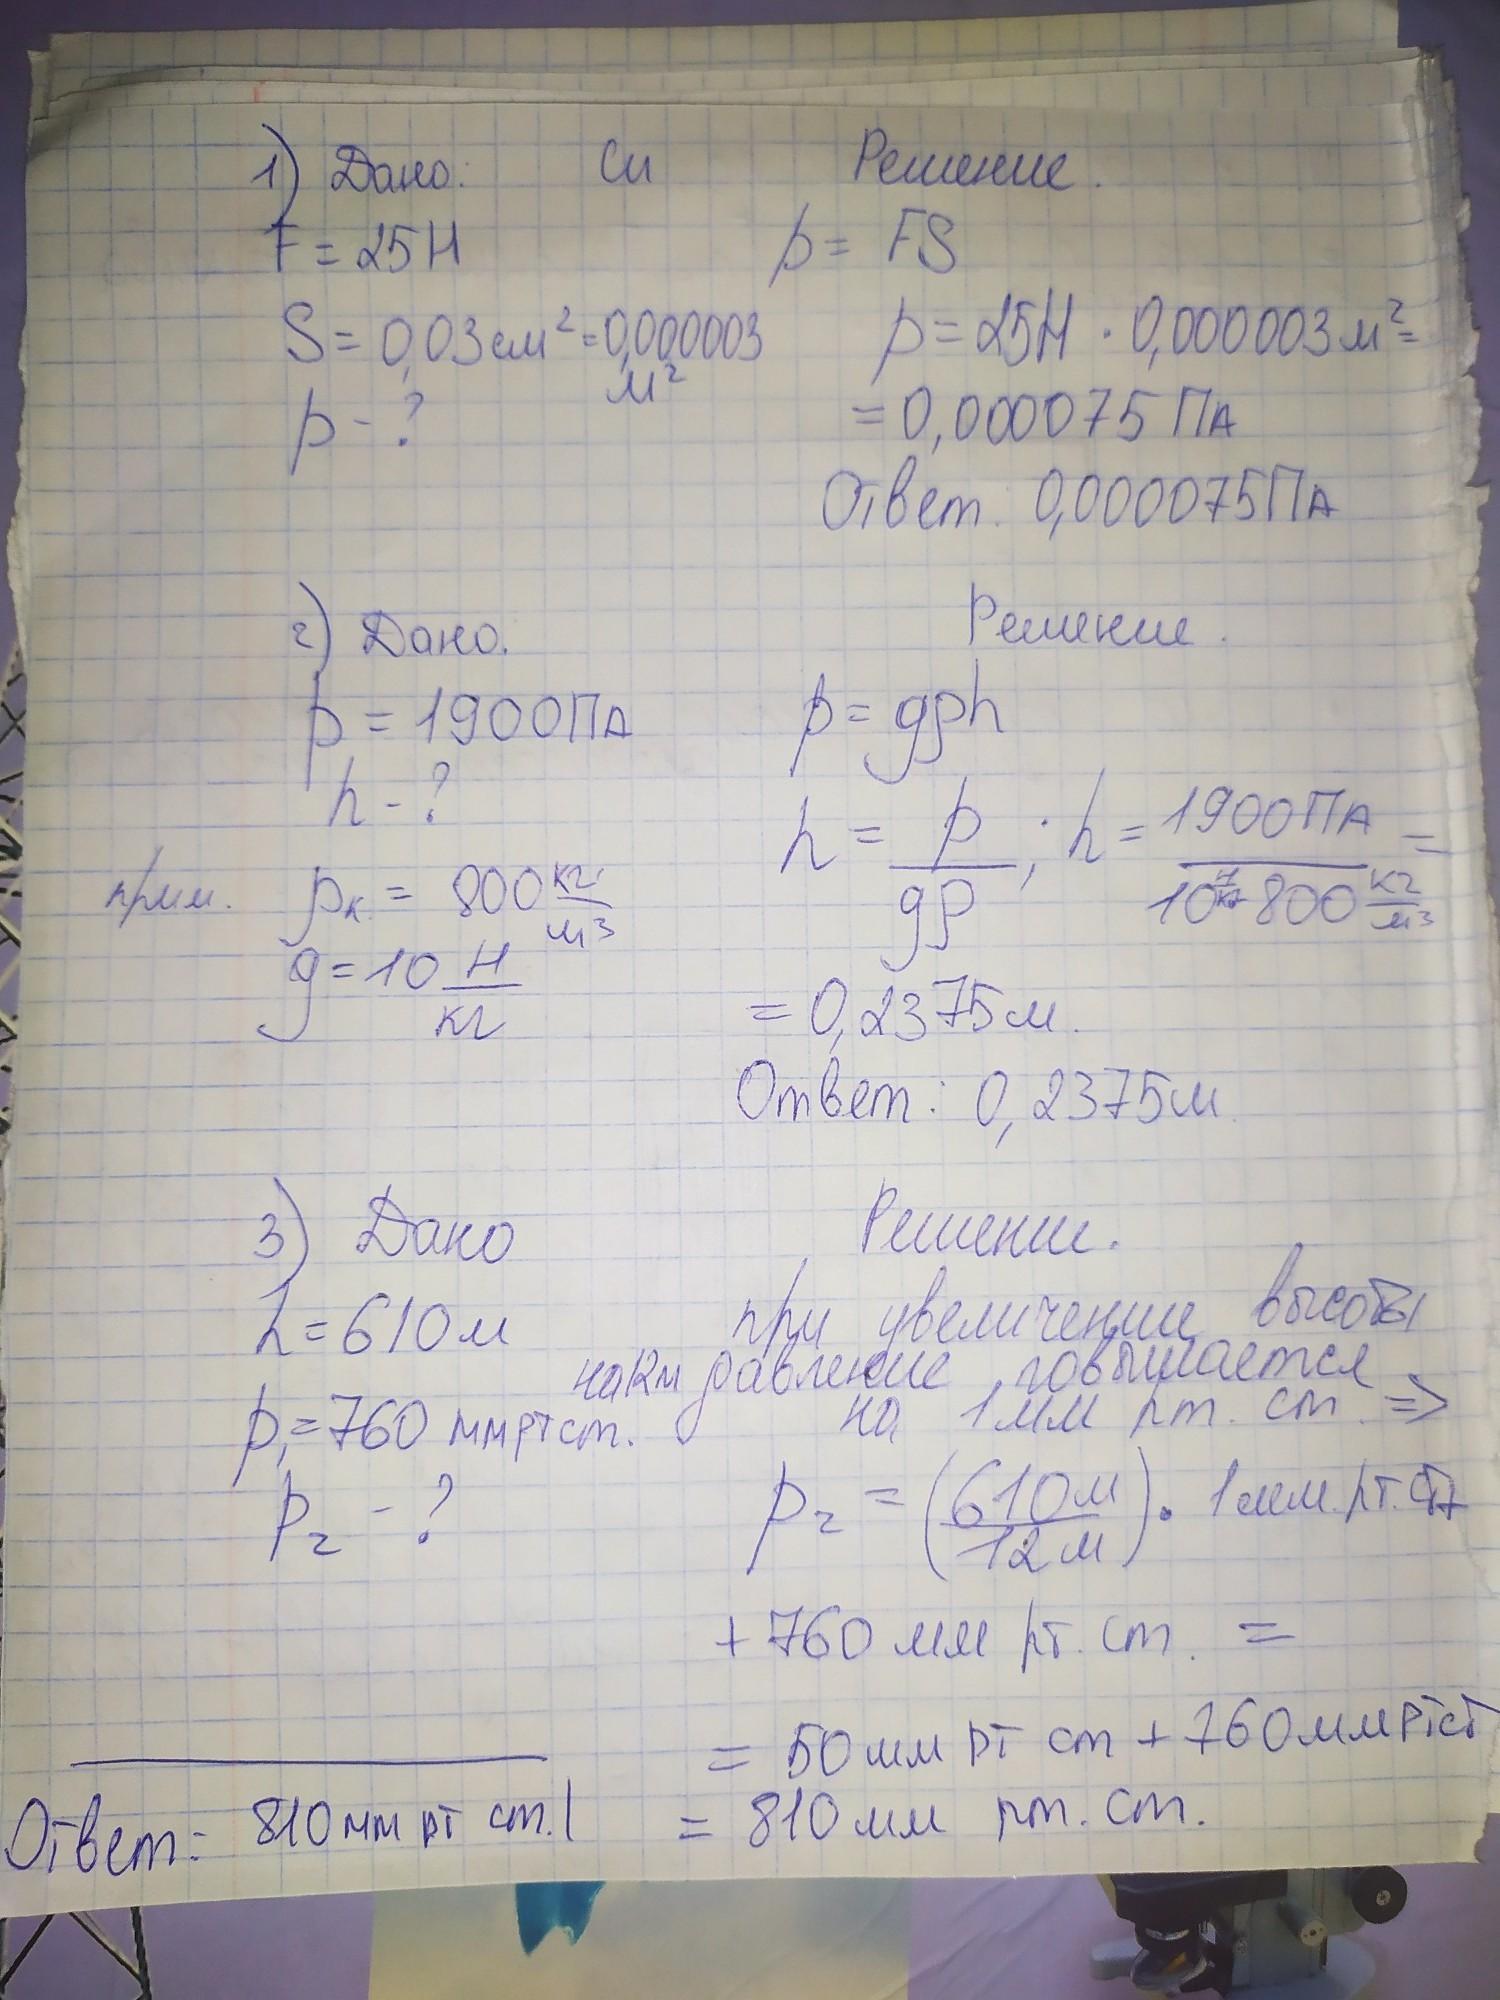 1) Дано: Си Решение.
F = 25Н p = FS
S = 0,03 см² = 0,000003 м² p = 25Н · 0,000003 м² =
p - ? = 0,000075 ПА
Ответ: 0,000075 ПА
2) Дано. Решение.
p = 1900 ПА p = gρh
h - ? h = p/gρ ; h = 1900 ПА / 10 Н/кг 800 кг/м³ =
прим. ρк = 800 кг/м³
g = 10 Н/кг = 0,2375 м.
Ответ: 0,2375 м.
3) Дано Решение.
h = 610 м при увеличение высоты
на 12м давление повышается
p₁ = 760 мм рт ст. на 1 мм рт. ст. =>
p₂ - ? p₂ = (610 м / 12 м) · 1 мм. рт. ст
+ 760 мм рт. ст. =
= 50 мм рт ст + 760 мм рт ст
Ответ: 810 мм рт ст. = 810 мм рт. ст.